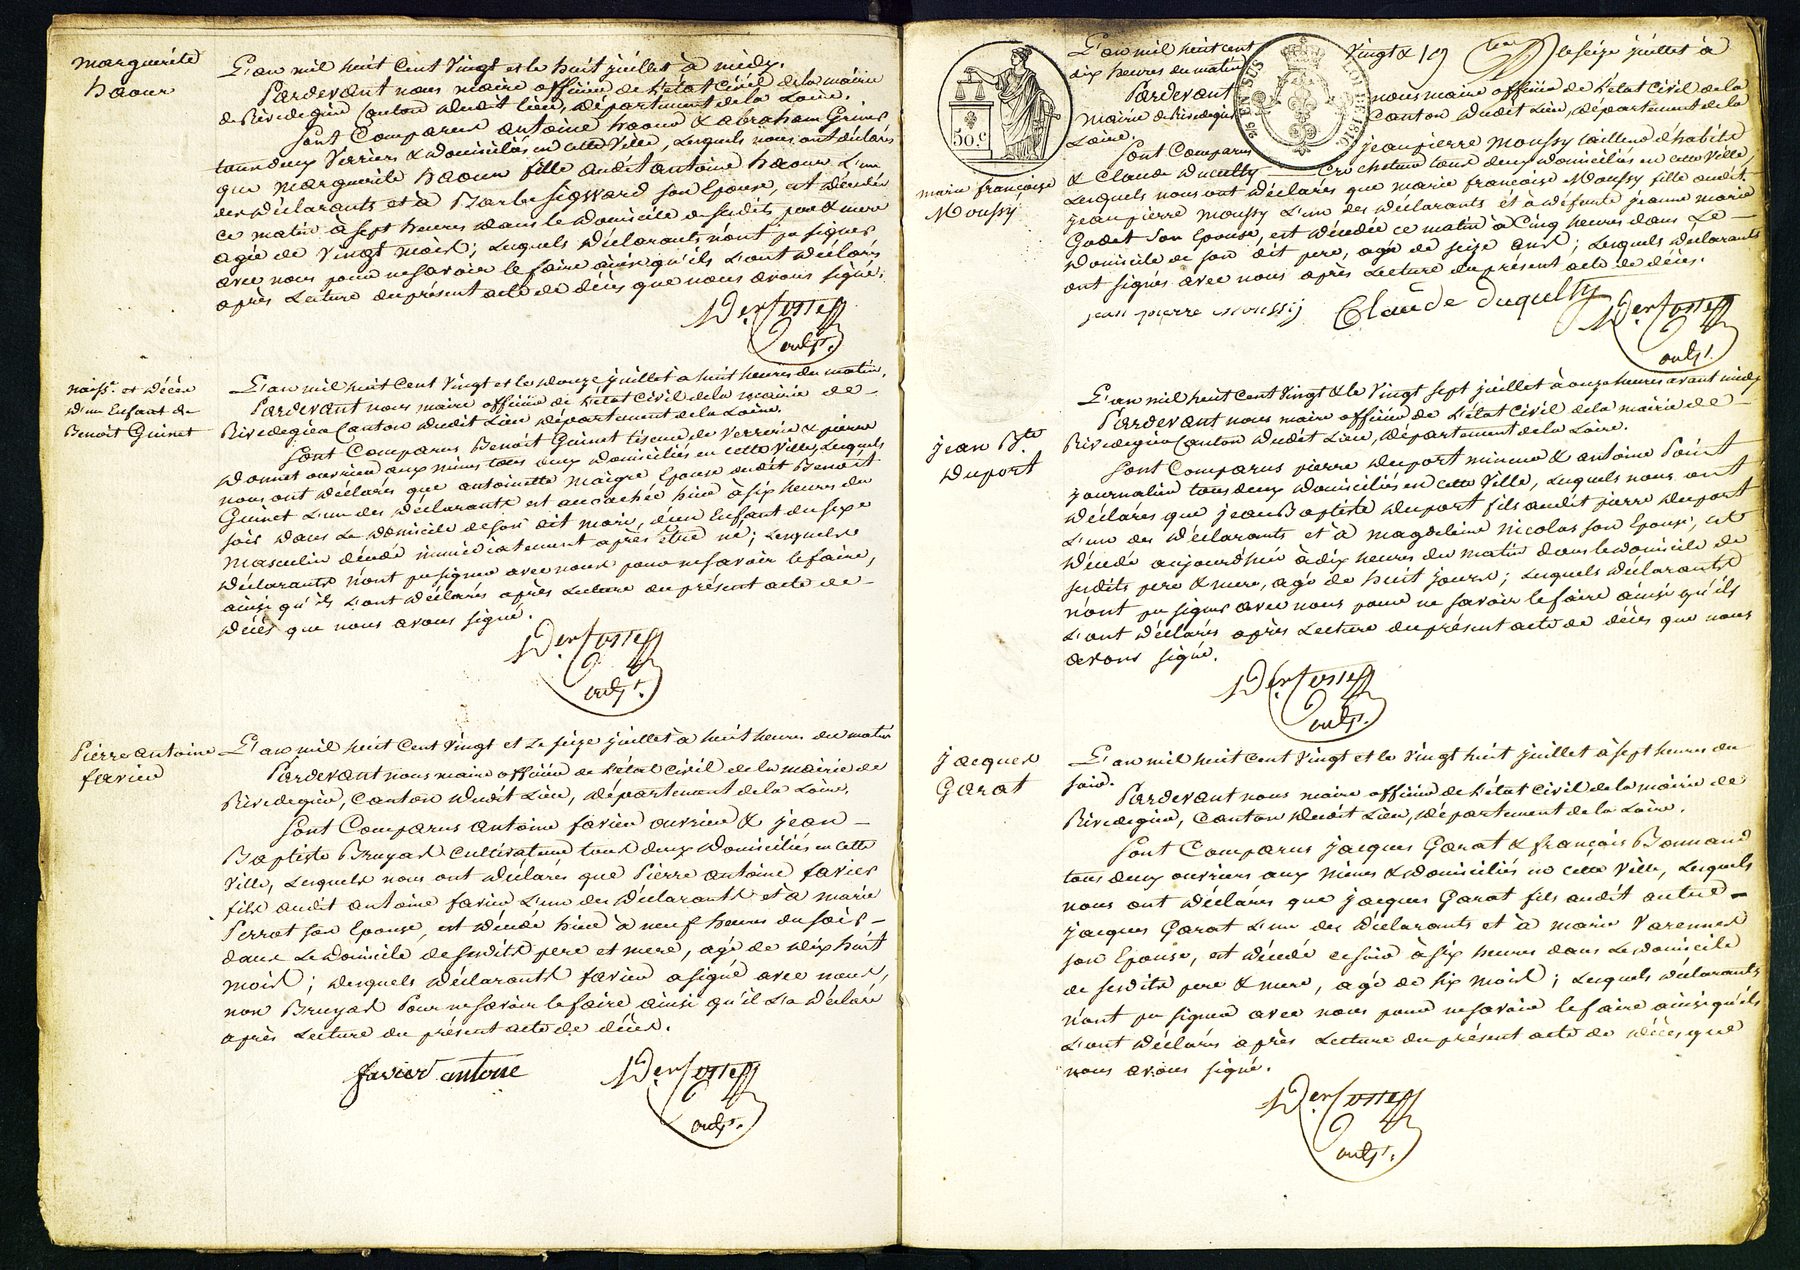 marguerite
haour
L'an mil huit Cent Vingt et le huit juillet à midy.
Pardevant nous maire officier de l'état Civil de la mairie
de Rivedegier Canton dudit lieu, département de la Loire.
Sont Comparus antoine haour & abraham Griner
tous deux Verriers & domiciliés en cette Ville, lesquels nous ont déclarés
que marguerite haour fille dudit antoine haour L'un
des déclarants et à Barbe Sigward son Epouse, est décédée
ce matin à sept heures dans le domicile de sesdits pere & mere
agée de Vingt mois; lesquels déclarants n'ont pu signer
avec nous pour ne savoir le faire ainsi qu'ils L'ont déclarés
après Lecture du présent acte de décès que nous avons signé.
naiss.e et décès
d'un Enfant de
Benoît Guinet
L'an mil huit Cent Vingt et le douze juillet a huit heures du matin.
Pardevant nous maire officier de l'état Civil de la mairie de
Rivedegier Canton dudit Lieu département de la Loire.
Sont Comparus Benoît Guinet tiseur de Verrerie & pierre
Donnet ouvrier aux mines tous deux domiciliés en cette Ville, Lesquels
nous ont déclarés que antoinette maigre Epouse dudit Benoît
Guinet L'un des déclarants est accouchée hier à six heures du
soir dans Le domicile de son dit mari, d'un Enfant du sexe
masculin décédé immédiatement après être né; Lesquels
déclarants n'ont pu signer avec nous pour ne savoir le faire,
ainsi qu'ils L'ont déclarés après Lecture du présent acte de
décès que nous avons signé.
Pierre antoine
favier
L'an mil huit Cent Vingt et Le seize juillet à huit heures du matin
Pardevant nous maire officier de l'état Civil de la mairie de
Rivedegier, Canton dudit Lieu, département de la Loire.
Sont Comparus antoine favier ouvrier & jean
Baptiste Bruyas Cultivateur tous deux domiciliés en cette
Ville, Lesquels nous ont déclarés que Pierre antoine favier
fils dudit antoine favier L'un des déclarants et à marie
Perrot son Epouse, est décédé hier à neuf heures du soir
dans Le domicile de sesdits pere et mere, agé de dix huit
mois; desquels déclarants favier a signé avec nous,
non Bruyas Pour ne savoir le faire ainsi qu'il L'a déclaré
après Lecture du présent acte de décès.
favier antoine
50.c
2/5 EN SUS
LOI DE 1816
L'an mil huit cent Vingt & le seize juillet à
dix heures du matin
Pardevant nous maire officier de l'état Civil de la
mairie de Rivedegier Canton dudit Lieu, département de la
Loire.
Sont Comparus jean pierre Moussy tailleur d'habits
marie françoise
Moussy
& Claude duculty Crocheteur tous deux domiciliés en cette Ville,
Lesquels nous ont déclarés que marie françoise Moussy fille dudit
jean pierre moussy L'un des déclarants et à défunte jeanne marie
Godet son Epouse, est décédée ce matin à Cinq heures dans Le
domicile de son dit pere, agé de seize ans; Lesquels déclarants
ont signés avec nous après Lecture du présent acte de décès.
jean pierre moussy Claude duqulty
jean B.te
Duport
L'an mil huit Cent Vingt & le Vingt sept juillet à onze heures avant midy
Pardevant nous maire officier de l'état Civil de la mairie de
Rivedegier Canton dudit Lieu, département de la Loire.
Sont Comparus pierre duport mineur & antoine Point
journalier tous deux domiciliés en cette Ville, Lesquels nous ont
déclarés que jean Baptiste duport fils dudit pierre duport
L'un des déclarants et à magdeleine Nicolas son Epouse, est
décédé aujourdhuy à dix heures du matin dans le domicile de
sesdits pere & mere, agé de huit jours; Lesquels déclarants
n'ont pu signer avec nous pour ne savoir le faire ainsi qu'ils
L'ont déclarés après Lecture du présent acte de décès que nous
avons signé.
jacques
Garat
L'an mil huit Cent Vingt et le Vingt huit juillet à sept heures du
soir.
Pardevant nous maire officier de l'état Civil de la mairie de
Rivedegier, Canton dudit Lieu, département de la Loire.
Sont Comparus jacques Garat & françois Bonnand
tous deux ouvriers aux mines & domiciliés en cette Ville, Lesquels
nous ont déclarés que jacques Garat fils dudit autre
jacques Garat L'un des déclarants et à marie Varennes
son Epouse, est décédé ce soir à six heures dans Le domicile
de sesdits pere & mere, agé de six mois; Lesquels déclarants
n'ont pu signer avec nous pour ne savoir le faire ainsi qu'ils
L'ont déclarés après Lecture du présent acte de décès que
nous avons signé.